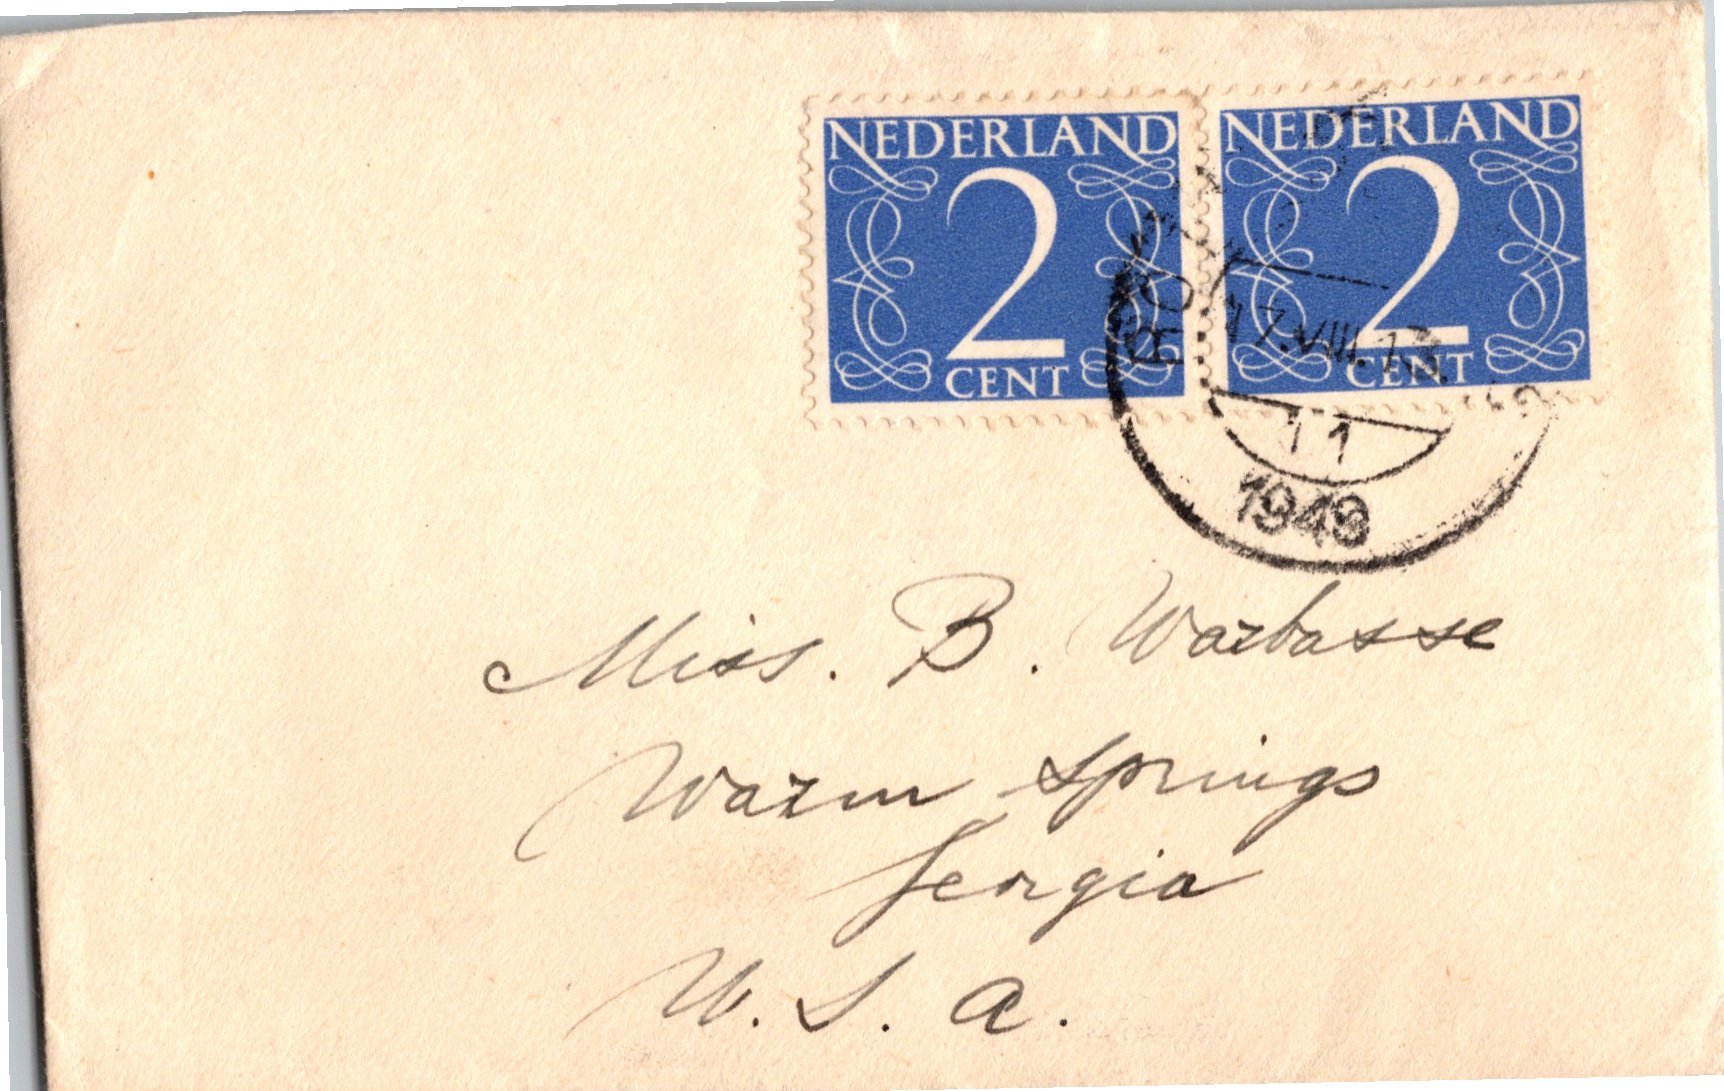 NEDERLAND
2
CENT
NEDERLAND
2
CENT
17.VIII.13.
11
1948
Miss. B. Warbasse
Warm Springs
Georgia
U. S. A.